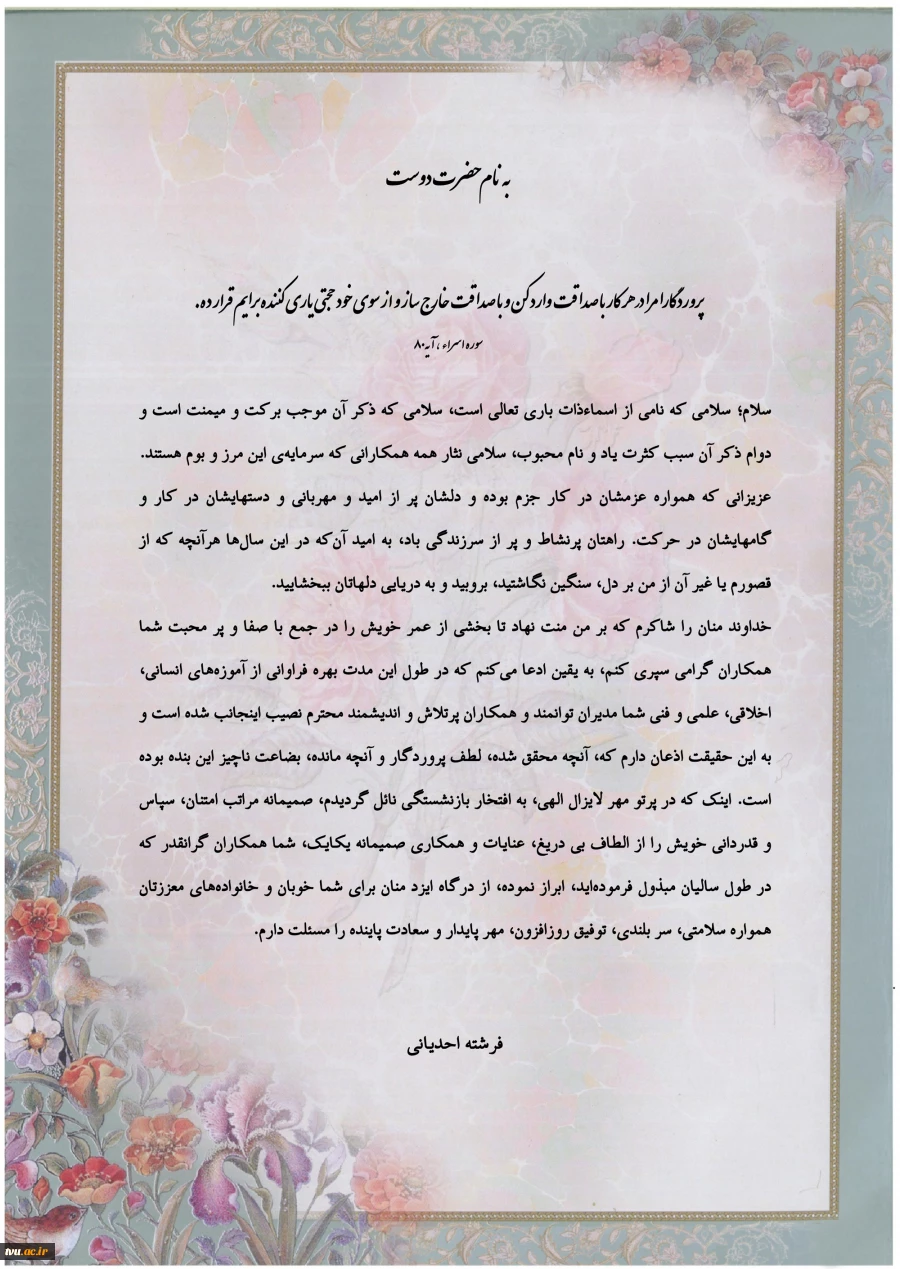 به نام حضرت دوست
پروردگارا مرا در هر کار با صداقت وارد کن و با صداقت خارج ساز و از سوی خود حجتی یاری کننده برایم قرار ده.
سوره اسراء ، آیه ۸۰
سلام؛ سلامی که نامی از اسماءذات باری تعالی است، سلامی که ذکر آن موجب برکت و میمنت است و
دوام ذکر آن سبب کثرت یاد و نام محبوب، سلامی نثار همه همکارانی که سرمایه‌ی این مرز و بوم هستند.
عزیزانی که همواره عزمشان در کار جزم بوده و دلشان پر از امید و مهربانی و دستهایشان در کار و
گامهایشان در حرکت. راهتان پرنشاط و پر از سرزندگی باد، به امید آن‌که در این سال‌ها هرآنچه که از
قصورم یا غیر آن از من بر دل، سنگین نگاشتید، بروبید و به دریایی دلهاتان ببخشایید.
خداوند منان را شاکرم که بر من منت نهاد تا بخشی از عمر خویش را در جمع با صفا و پر محبت شما
همکاران گرامی سپری کنم، به یقین ادعا می‌کنم که در طول این مدت بهره فراوانی از آموزه‌های انسانی،
اخلاقی، علمی و فنی شما مدیران توانمند و همکاران پرتلاش و اندیشمند محترم نصیب اینجانب شده است و
به این حقیقت اذعان دارم که، آنچه محقق شده، لطف پروردگار و آنچه مانده، بضاعت ناچیز این بنده بوده
است. اینک که در پرتو مهر لایزال الهی، به افتخار بازنشستگی نائل گردیدم، صمیمانه مراتب امتنان، سپاس
و قدردانی خویش را از الطاف بی دریغ، عنایات و همکاری صمیمانه یکایک، شما همکاران گرانقدر که
در طول سالیان مبذول فرموده‌اید، ابراز نموده، از درگاه ایزد منان برای شما خوبان و خانواده‌های معززتان
همواره سلامتی، سر بلندی، توفیق روزافزون، مهر پایدار و سعادت پاینده را مسئلت دارم.
فرشته احدیانی
tvu.ac.ir